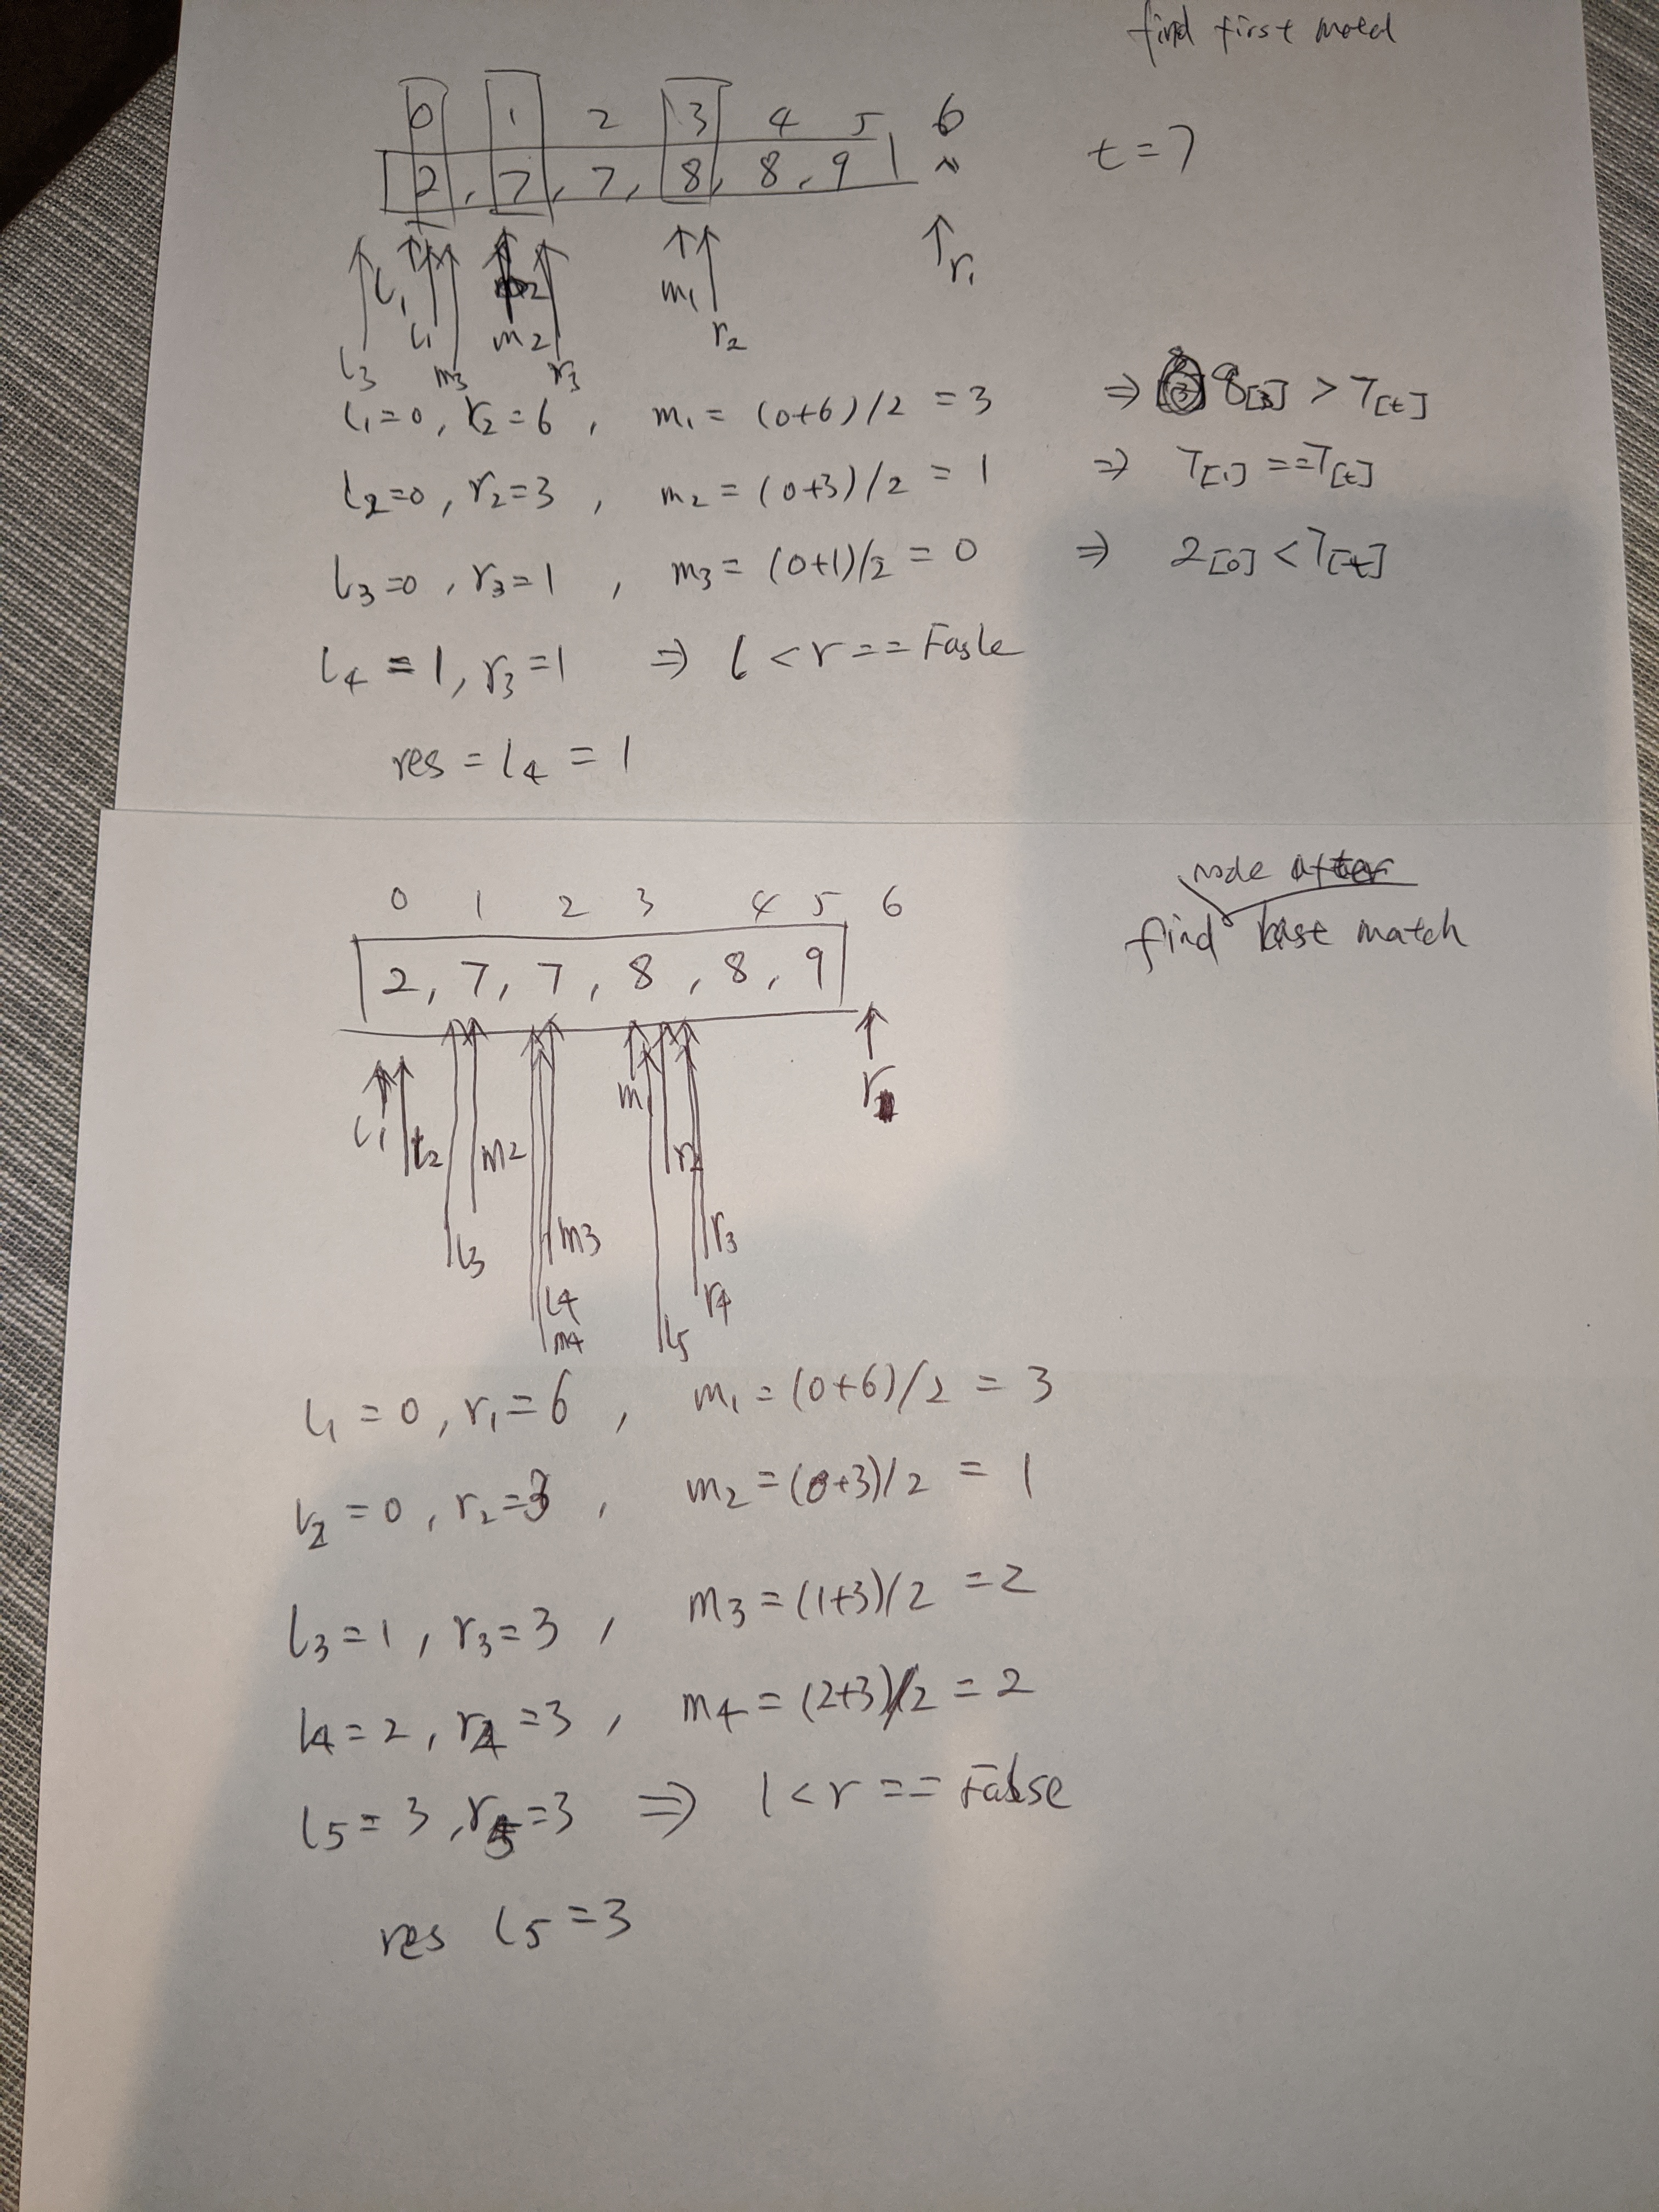 find first
0 1 2 3 4 5 6
[2, 7, 7, 8, 8, 9] ~
t = 7
l1 l1 l3 m3 m2 r3 m1 r2 r1
l1=0, r2=6, m1=(0+6)/2 = 3 ⇒ 8[3] > 7[t]
l2=0, r2=3, m2=(0+3)/2 = 1 ⇒ 7[1]==7[t]
l3=0, r3=1, m3=(0+1)/2 = 0 ⇒ 2[0]<7[t]
l4=1, r3=1 ⇒ l<r==Fasle
res = l4 = 1
node after
find match
0 1 2 3 4 5 6
[2, 7, 7, 8, 8, 9]
l1 l2 l3 m2 m3 l4 m4 m1 l5 r2 r3 r4 r
l1=0, r1=6, m1=(0+6)/2 = 3
l2=0, r2=3, m2=(0+3)/2 = 1
l3=1, r3=3, m3=(1+3)/2 =2
l4=2, r4=3, m4=(2+3)/2=2
l5=3, r5=3 ⇒ l<r==False
res l5=3